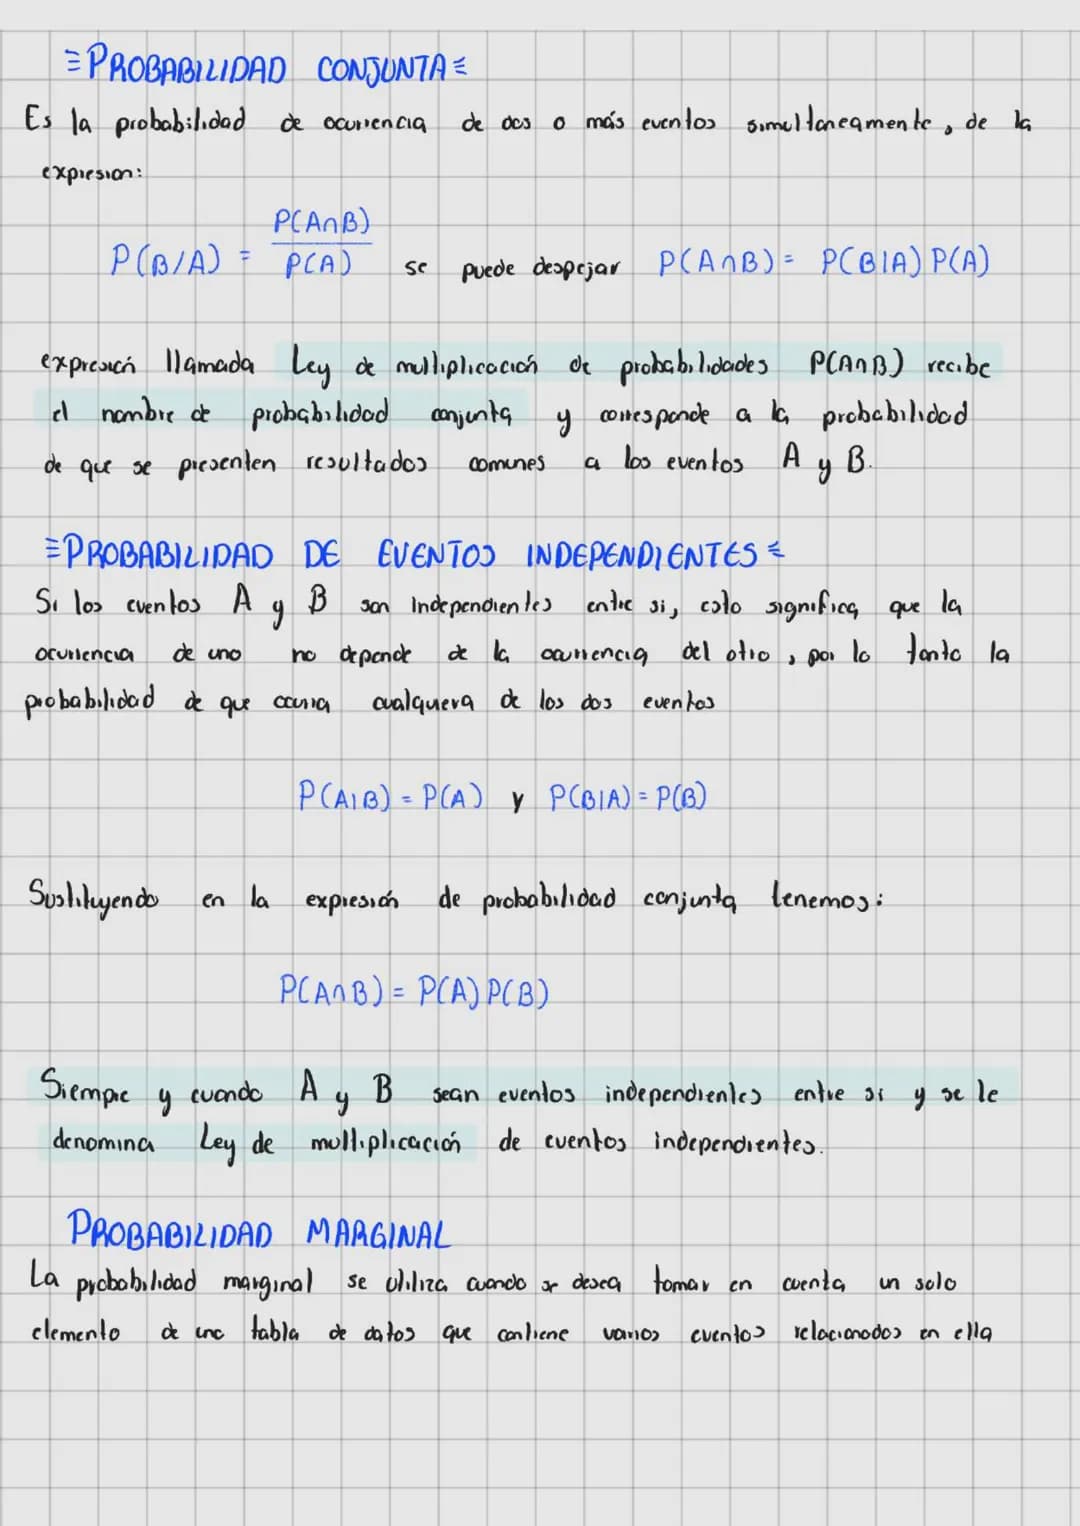 PROBABILIDAD CONJUNTA
Es la probabilidad de ocurrencia de dos o más eventos simultaneamente, de la
expresion:
P(B/A) = P(A∩B) / P(A) se puede despejar P(A∩B) = P(B|A) P(A)
expresión llamada Ley de multiplicación de probabilidades P(A∩B) recibe
el nombre de probabilidad conjunta y corresponde a la probabilidad
de que se presenten resultados comunes a los eventos A y B.
PROBABILIDAD DE EVENTOS INDEPENDIENTES
Si los eventos A y B son Independientes entre si, esto significa que la
ocurrencia de uno no depende de la ocurrencia del otro, por lo tanto la
probabilidad de que ocurra cualquera de los dos eventos
P(A|B) = P(A) y P(B|A) = P(B)
Sustituyendo en la expresión de probabilidad conjunta tenemos:
P(A∩B) = P(A) P(B)
Siempre y cuando A y B sean eventos independientes entre si y se le
denomina Ley de multiplicación de eventos independientes.
PROBABILIDAD MARGINAL
La probabilidad marginal se utiliza cuando se desea tomar en cuenta un solo
elemento de una tabla de datos que contiene varios eventos relacionados en ella